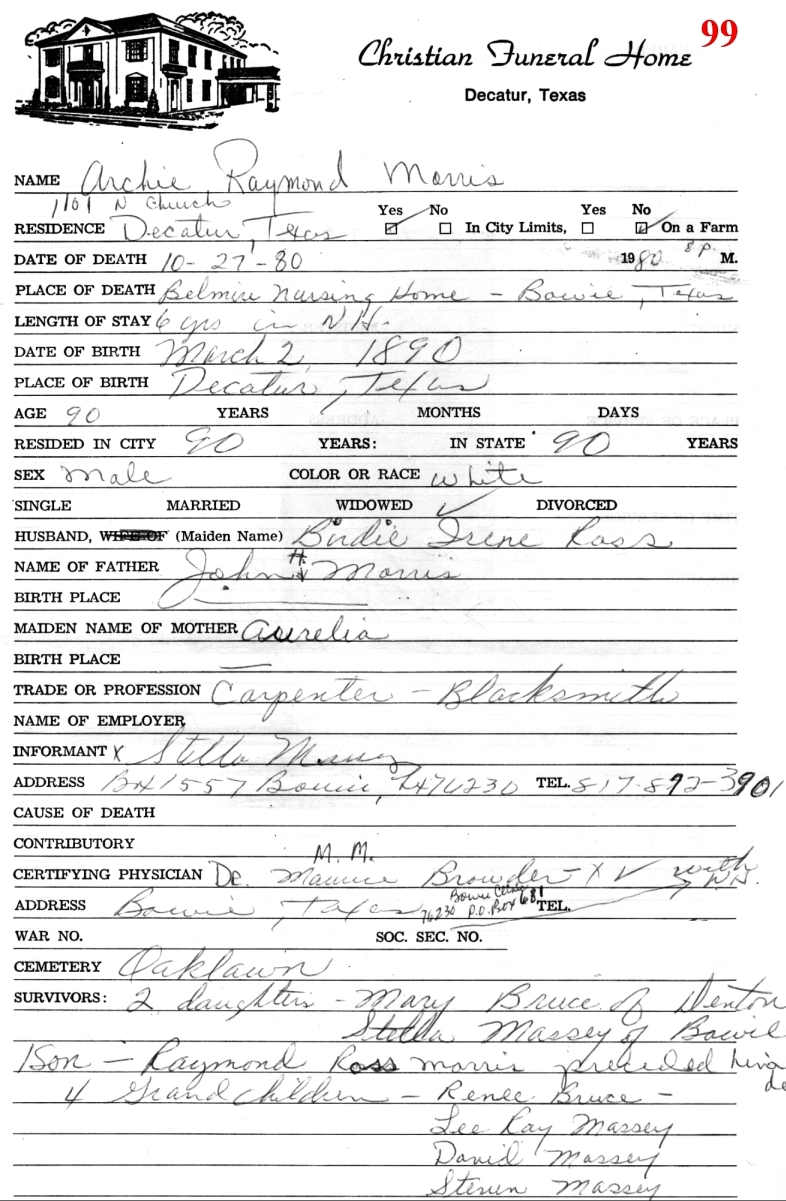 Christian Funeral Home 99
Decatur, Texas
NAME Archie Raymond Morris
1101 N Church
RESIDENCE Decatur, Texas Yes No In City Limits, Yes No On a Farm
DATE OF DEATH 10-27-80 1980 8 P. M.
PLACE OF DEATH Belmire Nursing Home - Bowie, Texas
LENGTH OF STAY 6 yrs in N.H.
DATE OF BIRTH March 2, 1890
PLACE OF BIRTH Decatur, Texas
AGE 90 YEARS MONTHS DAYS
RESIDED IN CITY 90 YEARS: IN STATE 90 YEARS
SEX Male COLOR OR RACE White
SINGLE MARRIED WIDOWED ✓ DIVORCED
HUSBAND, WIFE OF (Maiden Name) Birdie Irene Ross
NAME OF FATHER John H. Morris
BIRTH PLACE
MAIDEN NAME OF MOTHER Aurelia
BIRTH PLACE
TRADE OR PROFESSION Carpenter - Blacksmith
NAME OF EMPLOYER
INFORMANT X Stella Massey
ADDRESS Box 1557 Bowie, Tx 76230 TEL. 817-892-3901
CAUSE OF DEATH
CONTRIBUTORY
M. M.
CERTIFYING PHYSICIAN Dr. Maurice Browder X ✓ with N.H.
ADDRESS Bowie, Texas Bowie Clinic 76230 P.O. Box 681 TEL.
WAR NO. SOC. SEC. NO.
CEMETERY Oaklawn
SURVIVORS: 2 daughters - Mary Bruce of Denton
Stella Massey of Bowie
1 Son - Raymond Ross Morris preceded him
de
4 Grandchildren - Renee Bruce -
Lee Ray Massey
David Massey
Steven Massey